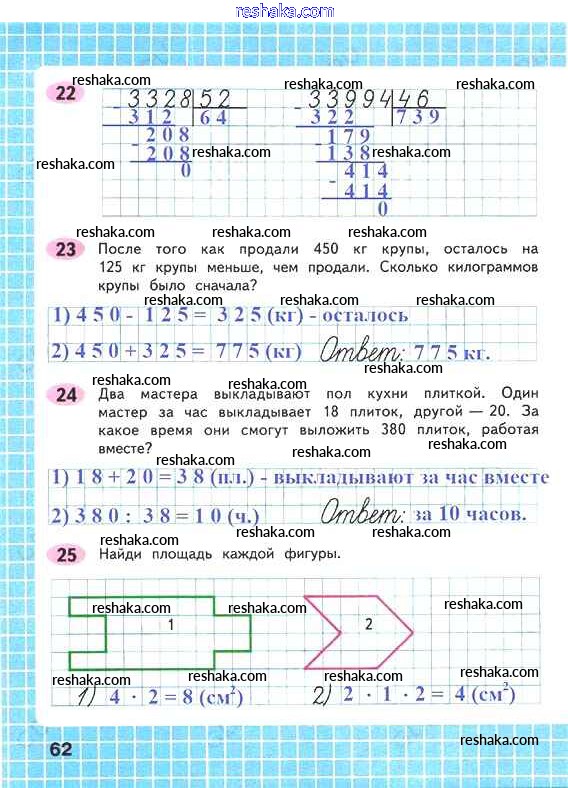 reshaka.com
reshaka.com
reshaka.com reshaka.com
22 3328 52 33994 46
- 312 64 - 322 739
- 208 - 179
208 138
0 - 414
414
0
reshaka.com reshaka.com
reshaka.com reshaka.com reshaka.com
reshaka.com reshaka.com
23 После того как продали 450 кг крупы, осталось на
125 кг крупы меньше, чем продали. Сколько килограммов
крупы было сначала?
reshaka.com reshaka.com
reshaka.com
1) 450 - 125 = 325 (кг) - осталось
reshaka.com
2) 450 + 325 = 775 (кг) Ответ: 775 кг.
reshaka.com reshaka.com
24 Два мастера выкладывают пол кухни плиткой. Один
мастер за час выкладывает 18 плиток, другой — 20. За
какое время они смогут выложить 380 плиток, работая
вместе?
reshaka.com reshaka.com
reshaka.com
1) 18 + 20 = 38 (пл.) - выкладывают за час вместе
reshaka.com reshaka.com
2) 380 : 38 = 10 (ч.) Ответ: за 10 часов.
reshaka.com reshaka.com
25 Найди площадь каждой фигуры.
reshaka.com reshaka.com reshaka.com
1 2
reshaka.com reshaka.com
reshaka.com
1) 4 · 2 = 8 (см²) 2) 2 · 1 · 2 = 4 (см²)
62
reshaka.com